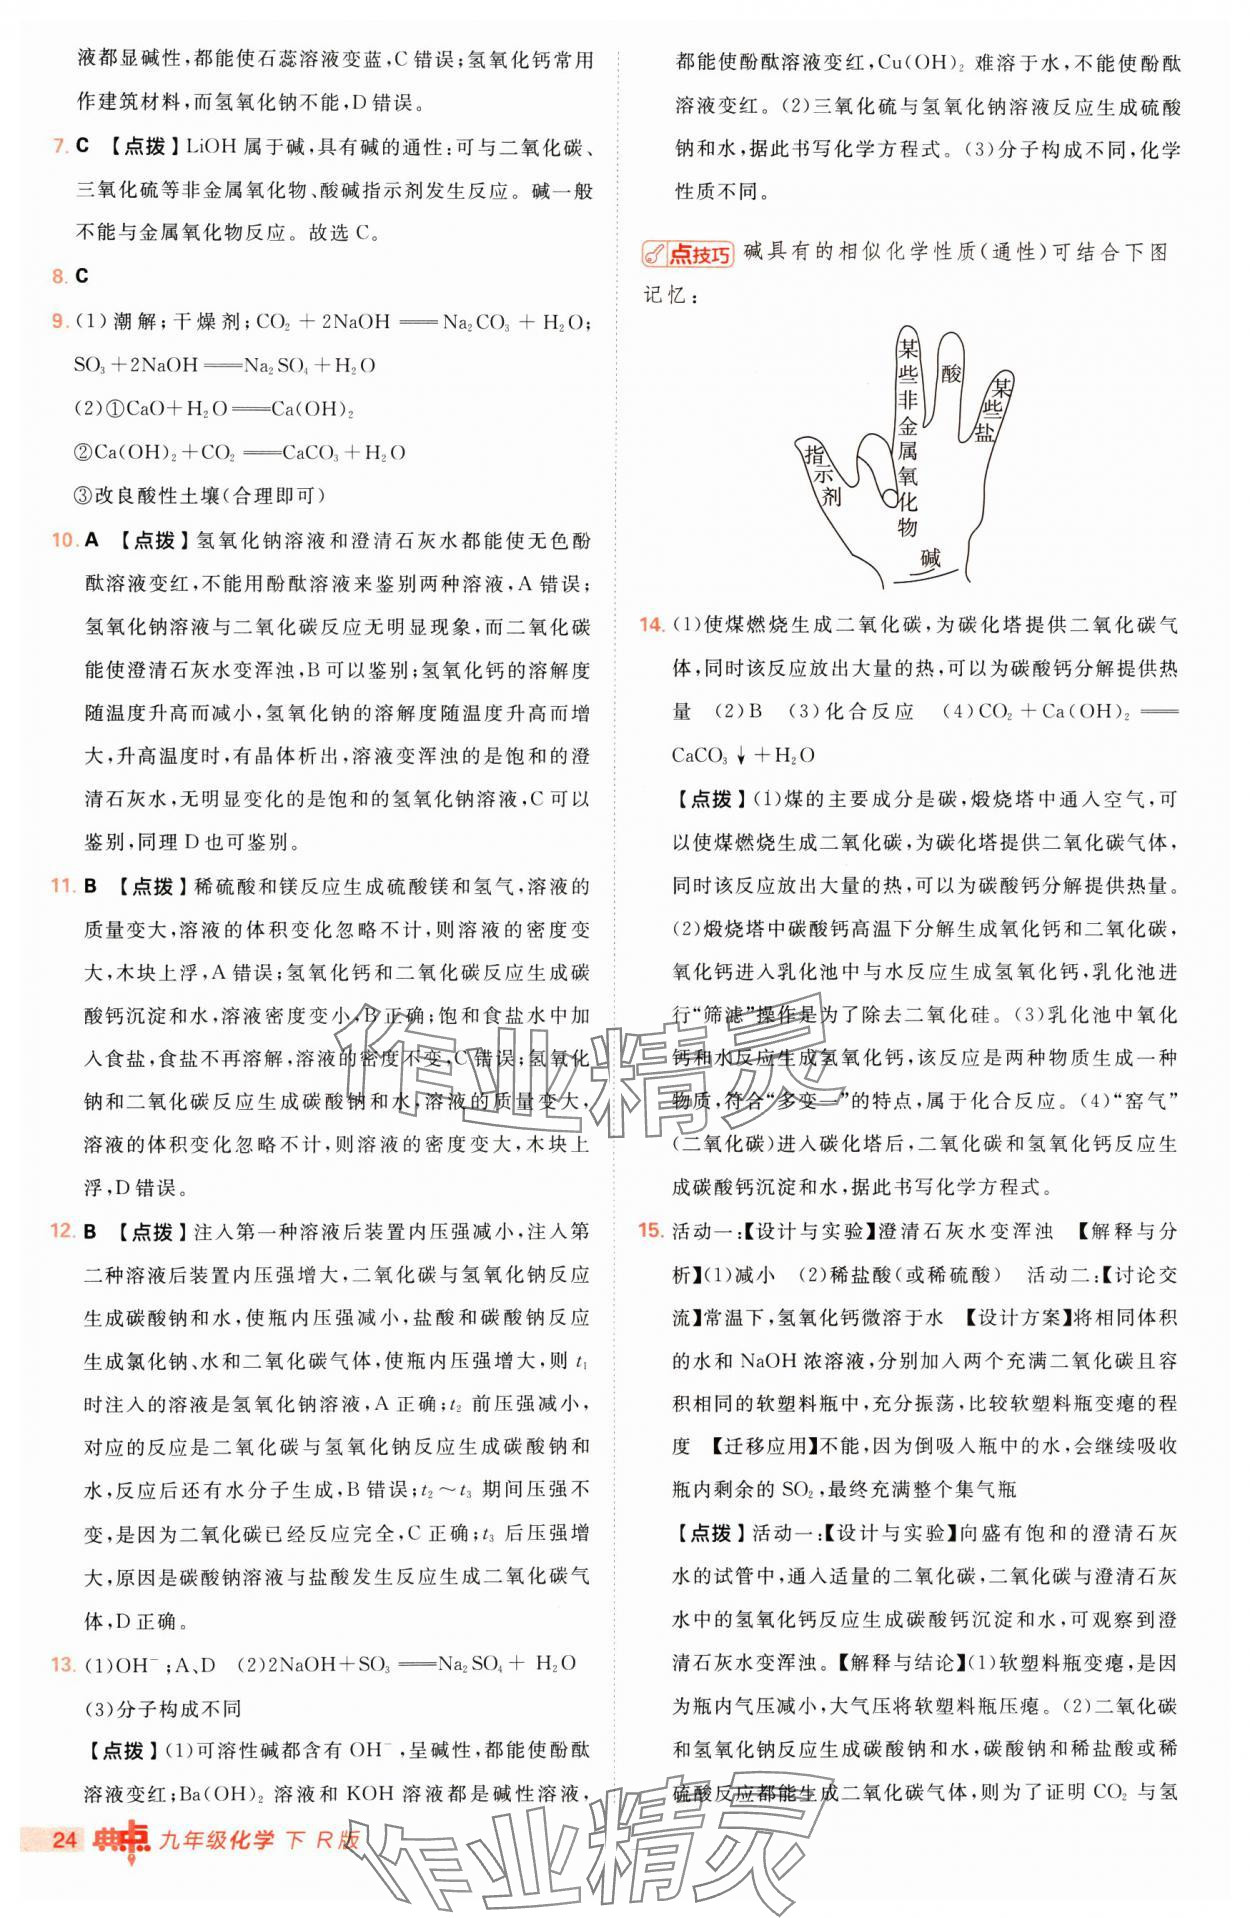 液都显碱性,都能使石蕊溶液变蓝,C错误;氢氧化钙常用
作建筑材料,而氢氧化钠不能,D错误。
7. C 【点拨】LiOH属于碱,具有碱的通性:可与二氧化碳、
三氧化硫等非金属氧化物、酸碱指示剂发生反应。碱一般
不能与金属氧化物反应。故选C。
8. C
9. (1)潮解;干燥剂;CO₂+2NaOH══Na₂CO₃+H₂O;
SO₃+2NaOH══Na₂SO₄+H₂O
(2)①CaO+H₂O══Ca(OH)₂
②Ca(OH)₂+CO₂══CaCO₃+H₂O
③改良酸性土壤(合理即可)
10. A 【点拨】氢氧化钠溶液和澄清石灰水都能使无色酚
酞溶液变红,不能用酚酞溶液来鉴别两种溶液,A错误;
氢氧化钠溶液与二氧化碳反应无明显现象,而二氧化碳
能使澄清石灰水变浑浊,B可以鉴别;氢氧化钙的溶解度
随温度升高而减小,氢氧化钠的溶解度随温度升高而增
大,升高温度时,有晶体析出,溶液变浑浊的是饱和的澄
清石灰水,无明显变化的是饱和的氢氧化钠溶液,C可以
鉴别,同理D也可鉴别。
11. B 【点拨】稀硫酸和镁反应生成硫酸镁和氢气,溶液的
质量变大,溶液的体积变化忽略不计,则溶液的密度变
大,木块上浮,A错误;氢氧化钙和二氧化碳反应生成碳
酸钙沉淀和水,溶液密度变小,B正确;饱和食盐水中加
入食盐,食盐不再溶解,溶液的密度不变,C错误;氢氧化
钠和二氧化碳反应生成碳酸钠和水,溶液的质量变大,
溶液的体积变化忽略不计,则溶液的密度变大,木块上
浮,D错误。
12. B 【点拨】注入第一种溶液后装置内压强减小,注入第
二种溶液后装置内压强增大,二氧化碳与氢氧化钠反应
生成碳酸钠和水,使瓶内压强减小,盐酸和碳酸钠反应
生成氯化钠、水和二氧化碳气体,使瓶内压强增大,则t₁
时注入的溶液是氢氧化钠溶液,A正确;t₂前压强减小,
对应的反应是二氧化碳与氢氧化钠反应生成碳酸钠和
水,反应后还有水分子生成,B错误;t₂~t₃期间压强不
变,是因为二氧化碳已经反应完全,C正确;t₃后压强增
大,原因是碳酸钠溶液与盐酸发生反应生成二氧化碳气
体,D正确。
13. (1)OH⁻;A、D (2)2NaOH+SO₃══Na₂SO₄+H₂O
(3)分子构成不同
【点拨】(1)可溶性碱都含有OH⁻,呈碱性,都能使酚酞
溶液变红;Ba(OH)₂溶液和KOH溶液都是碱性溶液,
都能使酚酞溶液变红,Cu(OH)₂难溶于水,不能使酚酞
溶液变红。(2)三氧化硫与氢氧化钠溶液反应生成硫酸
钠和水,据此书写化学方程式。(3)分子构成不同,化学
性质不同。
点技巧 碱具有的相似化学性质(通性)可结合下图
记忆:
指示剂
某些非金属氧化物
酸
某些盐
碱
14. (1)使煤燃烧生成二氧化碳,为碳化塔提供二氧化碳气
体,同时该反应放出大量的热,可以为碳酸钙分解提供热
量 (2)B (3)化合反应 (4)CO₂+Ca(OH)₂══
CaCO₃↓+H₂O
【点拨】(1)煤的主要成分是碳,煅烧塔中通入空气,可
以使煤燃烧生成二氧化碳,为碳化塔提供二氧化碳气体,
同时该反应放出大量的热,可以为碳酸钙分解提供热量。
(2)煅烧塔中碳酸钙高温下分解生成氧化钙和二氧化碳,
氧化钙进入乳化池中与水反应生成氢氧化钙,乳化池进
行“筛滤”操作是为了除去二氧化硅。(3)乳化池中氧化
钙和水反应生成氢氧化钙,该反应是两种物质生成一种
物质,符合“多变一”的特点,属于化合反应。(4)“窑气”
(二氧化碳)进入碳化塔后,二氧化碳和氢氧化钙反应生
成碳酸钙沉淀和水,据此书写化学方程式。
15. 活动一:【设计与实验】澄清石灰水变浑浊 【解释与分
析】(1)减小 (2)稀盐酸(或稀硫酸) 活动二:【讨论交
流】常温下,氢氧化钙微溶于水 【设计方案】将相同体积
的水和NaOH浓溶液,分别加入两个充满二氧化碳且容
积相同的软塑料瓶中,充分振荡,比较软塑料瓶变瘪的程
度 【迁移应用】不能,因为倒吸入瓶中的水,会继续吸收
瓶内剩余的SO₂,最终充满整个集气瓶
【点拨】活动一:【设计与实验】向盛有饱和的澄清石灰
水的试管中,通入适量的二氧化碳,二氧化碳与澄清石灰
水中的氢氧化钙反应生成碳酸钙沉淀和水,可观察到澄
清石灰水变浑浊。【解释与结论】(1)软塑料瓶变瘪,是因
为瓶内气压减小,大气压将软塑料瓶压瘪。(2)二氧化碳
和氢氧化钠反应生成碳酸钠和水,碳酸钠和稀盐酸或稀
硫酸反应都能生成二氧化碳气体,则为了证明CO₂与氢
24 典中点 九年级化学 下 R版
作业精灵
作业精灵